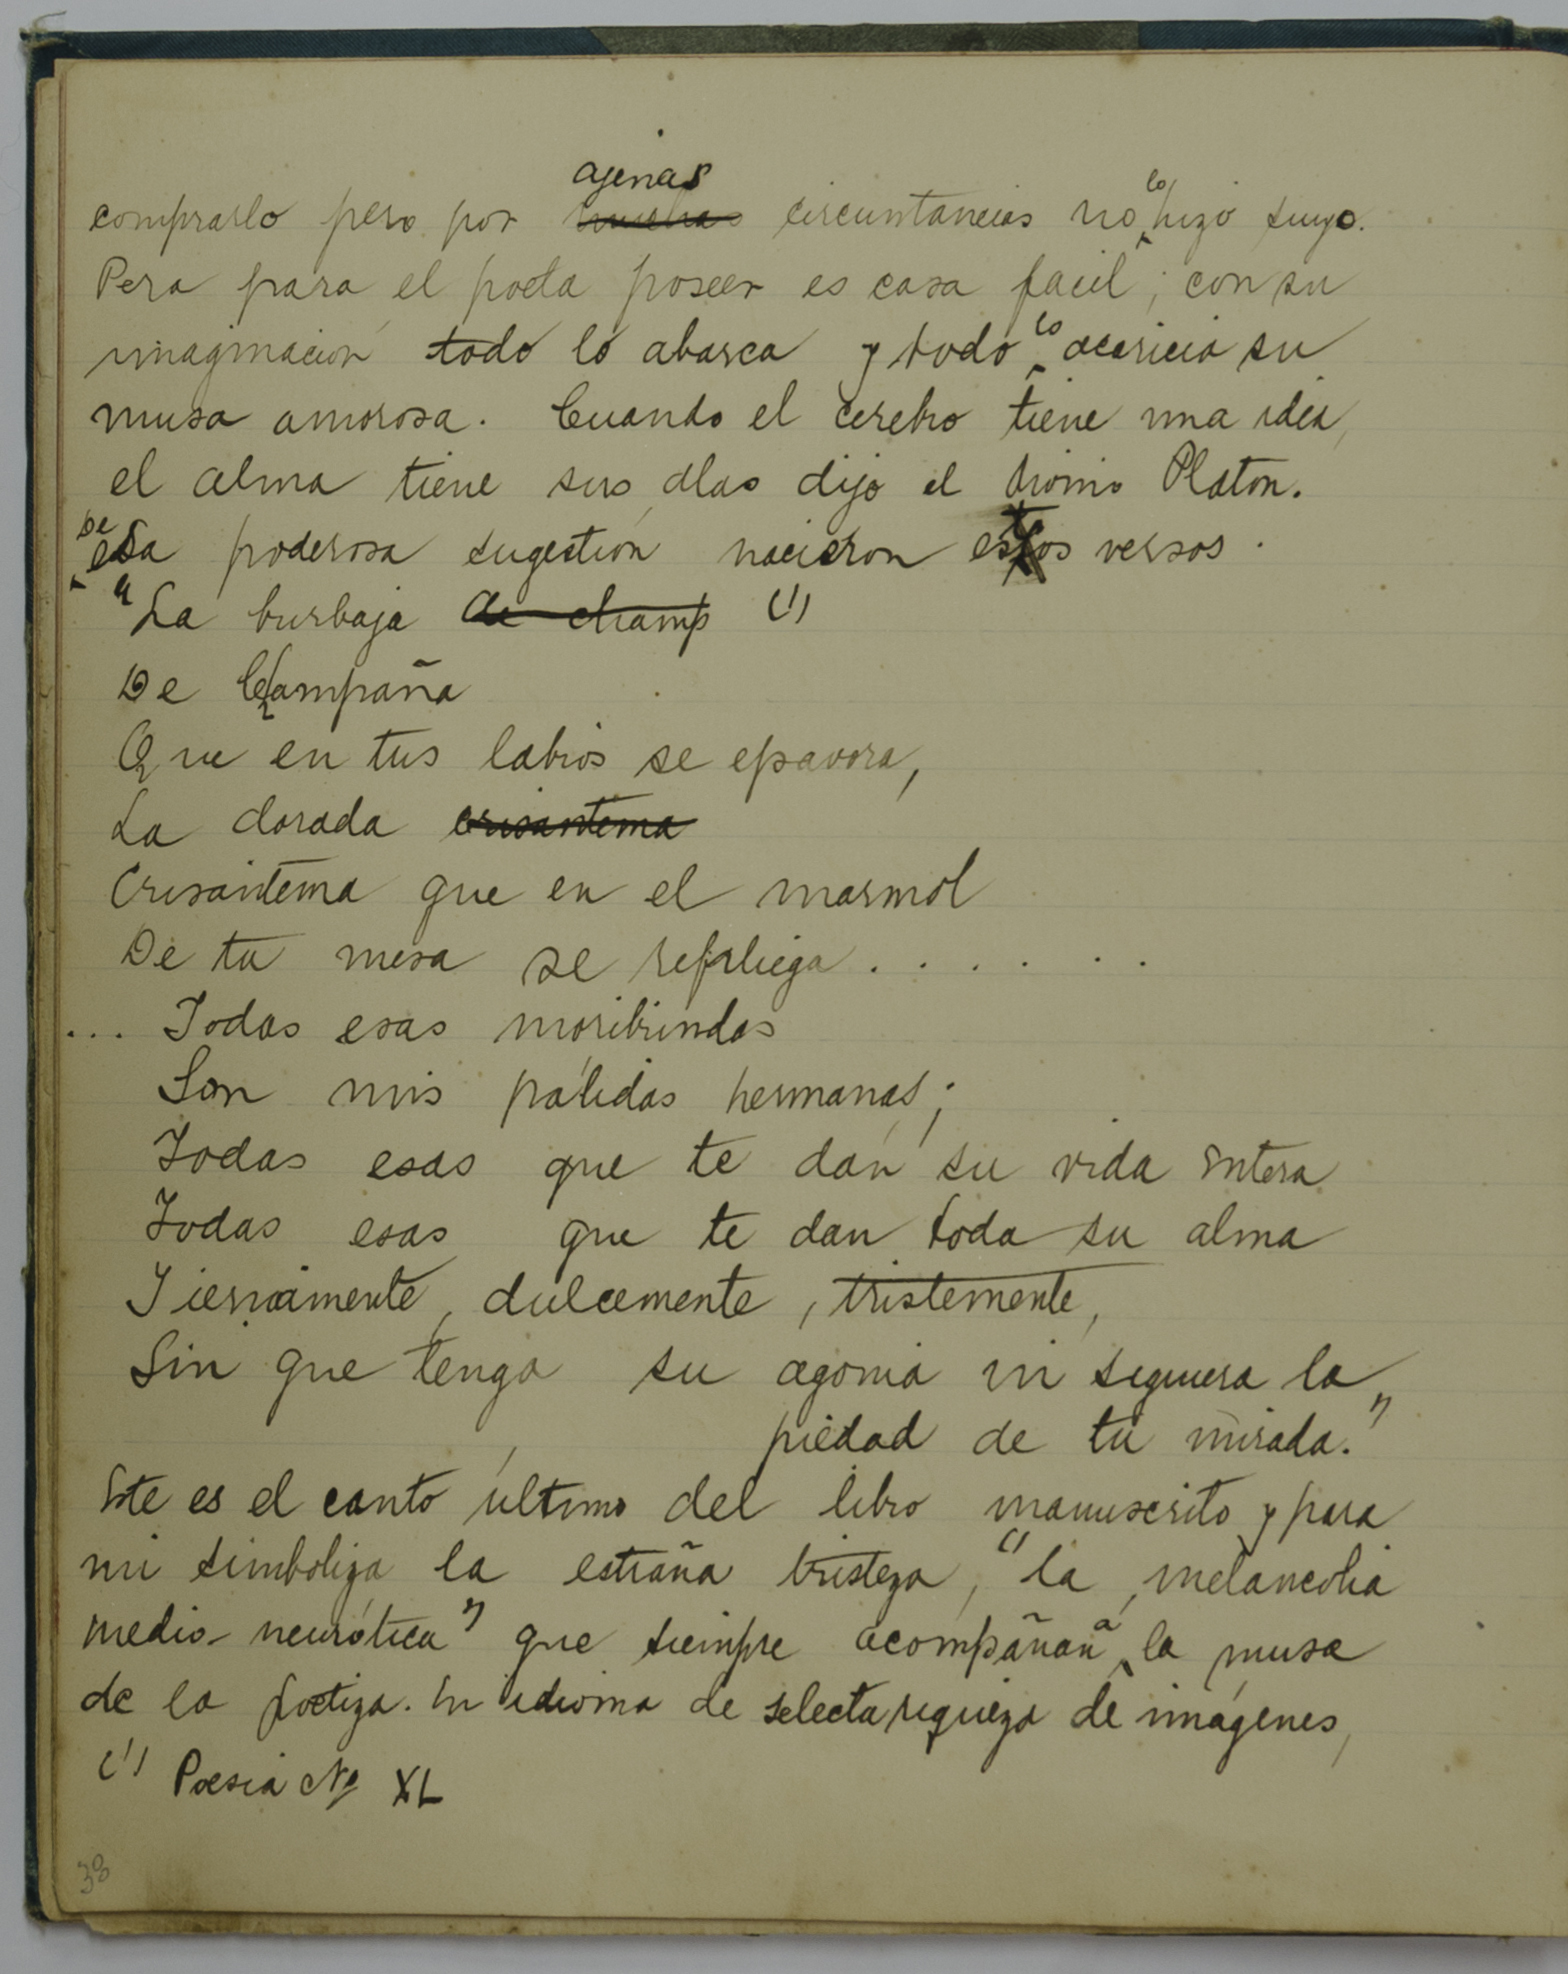 comprarlo pero por ajenas muchas circuntancias no lo hizo suyo.
Pera para el poeta poseer es casa facil; con su
imaginación todo lo abarca y todo lo acaricia su
musa amorosa. Cuando el cerebro tiene una idea,
el alma tiene sus alas dijo el Platon.
De esa poderosa sugestión nacieron estos versos.
"La burbaja de champ (1)
De Champaña
Que en tus labios se epavora,
La dorada crisantema
Crisantema que en el marmol
De tu mesa se repliega . . . . . .
... Todas esas moribundas
Son mis pálidas hermanas;
Todas esas que te dan su vida entera
Todas esas que te dan toda su alma
Tiernamente, dulcemente, tristemente,
Sin que tenga su agonia ni siquiera la
piedad de tu mirada."
Este es el canto último del libro manuscrito y para
mi simboliza la estraña tristeza, "la melancolia
medio-neurótica" que siempre acompañan a la musa
de la poetiza. En idioma de selecta riqueza de imágenes,
(1) Poesia No XL
38